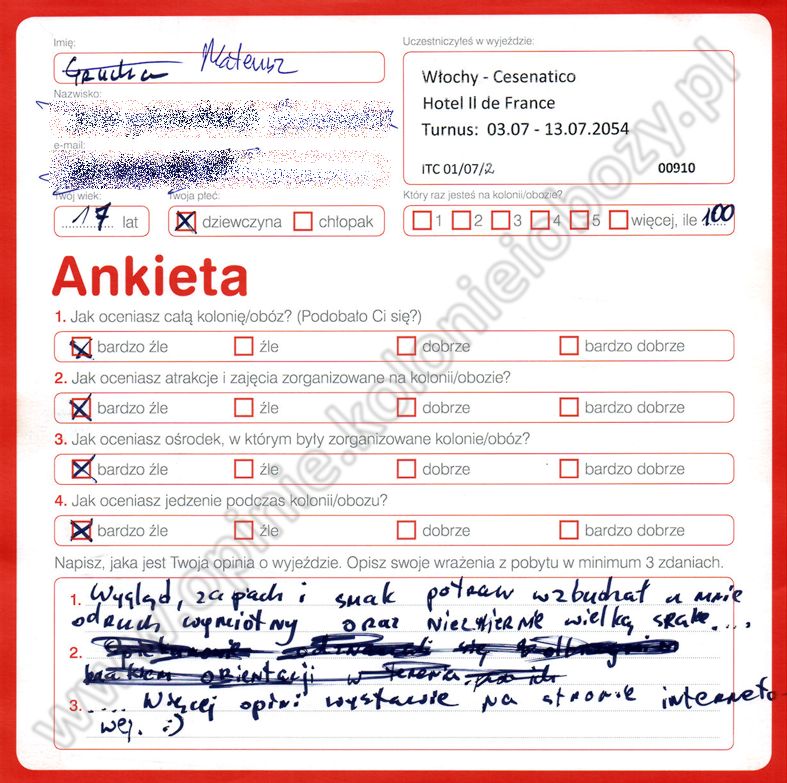 Imię:
Mateusz
Nazwisko:
e-mail:
Twój wiek:
17 lat
Twoja płeć:
dziewczyna chłopak
Uczestniczyłeś w wyjeździe:
Włochy - Cesenatico
Hotel Il de France
Turnus: 03.07 - 13.07.2054
ITC 01/07/2 00910
Który raz jesteś na kolonii/obozie?
1 2 3 4 5 więcej, ile 100
Ankieta
1. Jak oceniasz całą kolonię/obóz? (Podobało Ci się?)
bardzo źle źle dobrze bardzo dobrze
2. Jak oceniasz atrakcje i zajęcia zorganizowane na kolonii/obozie?
bardzo źle źle dobrze bardzo dobrze
3. Jak oceniasz ośrodek, w którym były zorganizowane kolonie/obóz?
bardzo źle źle dobrze bardzo dobrze
4. Jak oceniasz jedzenie podczas kolonii/obozu?
bardzo źle źle dobrze bardzo dobrze
Napisz, jaka jest Twoja opinia o wyjeździe. Opisz swoje wrażenia z pobytu w minimum 3 zdaniach.
1. Wygląd, zapach i smak potraw wzbudzał u mnie
odruch wymiotny oraz niezmiernie wielką
2.
brakiem orientacji w terenie
3. .... Więcej opini wystawie na stronie interneto-
wej. :)
www.opinie.kolonieiobozy.pl